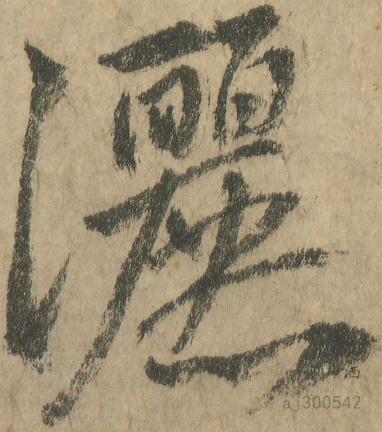 灑
洒
aj300542